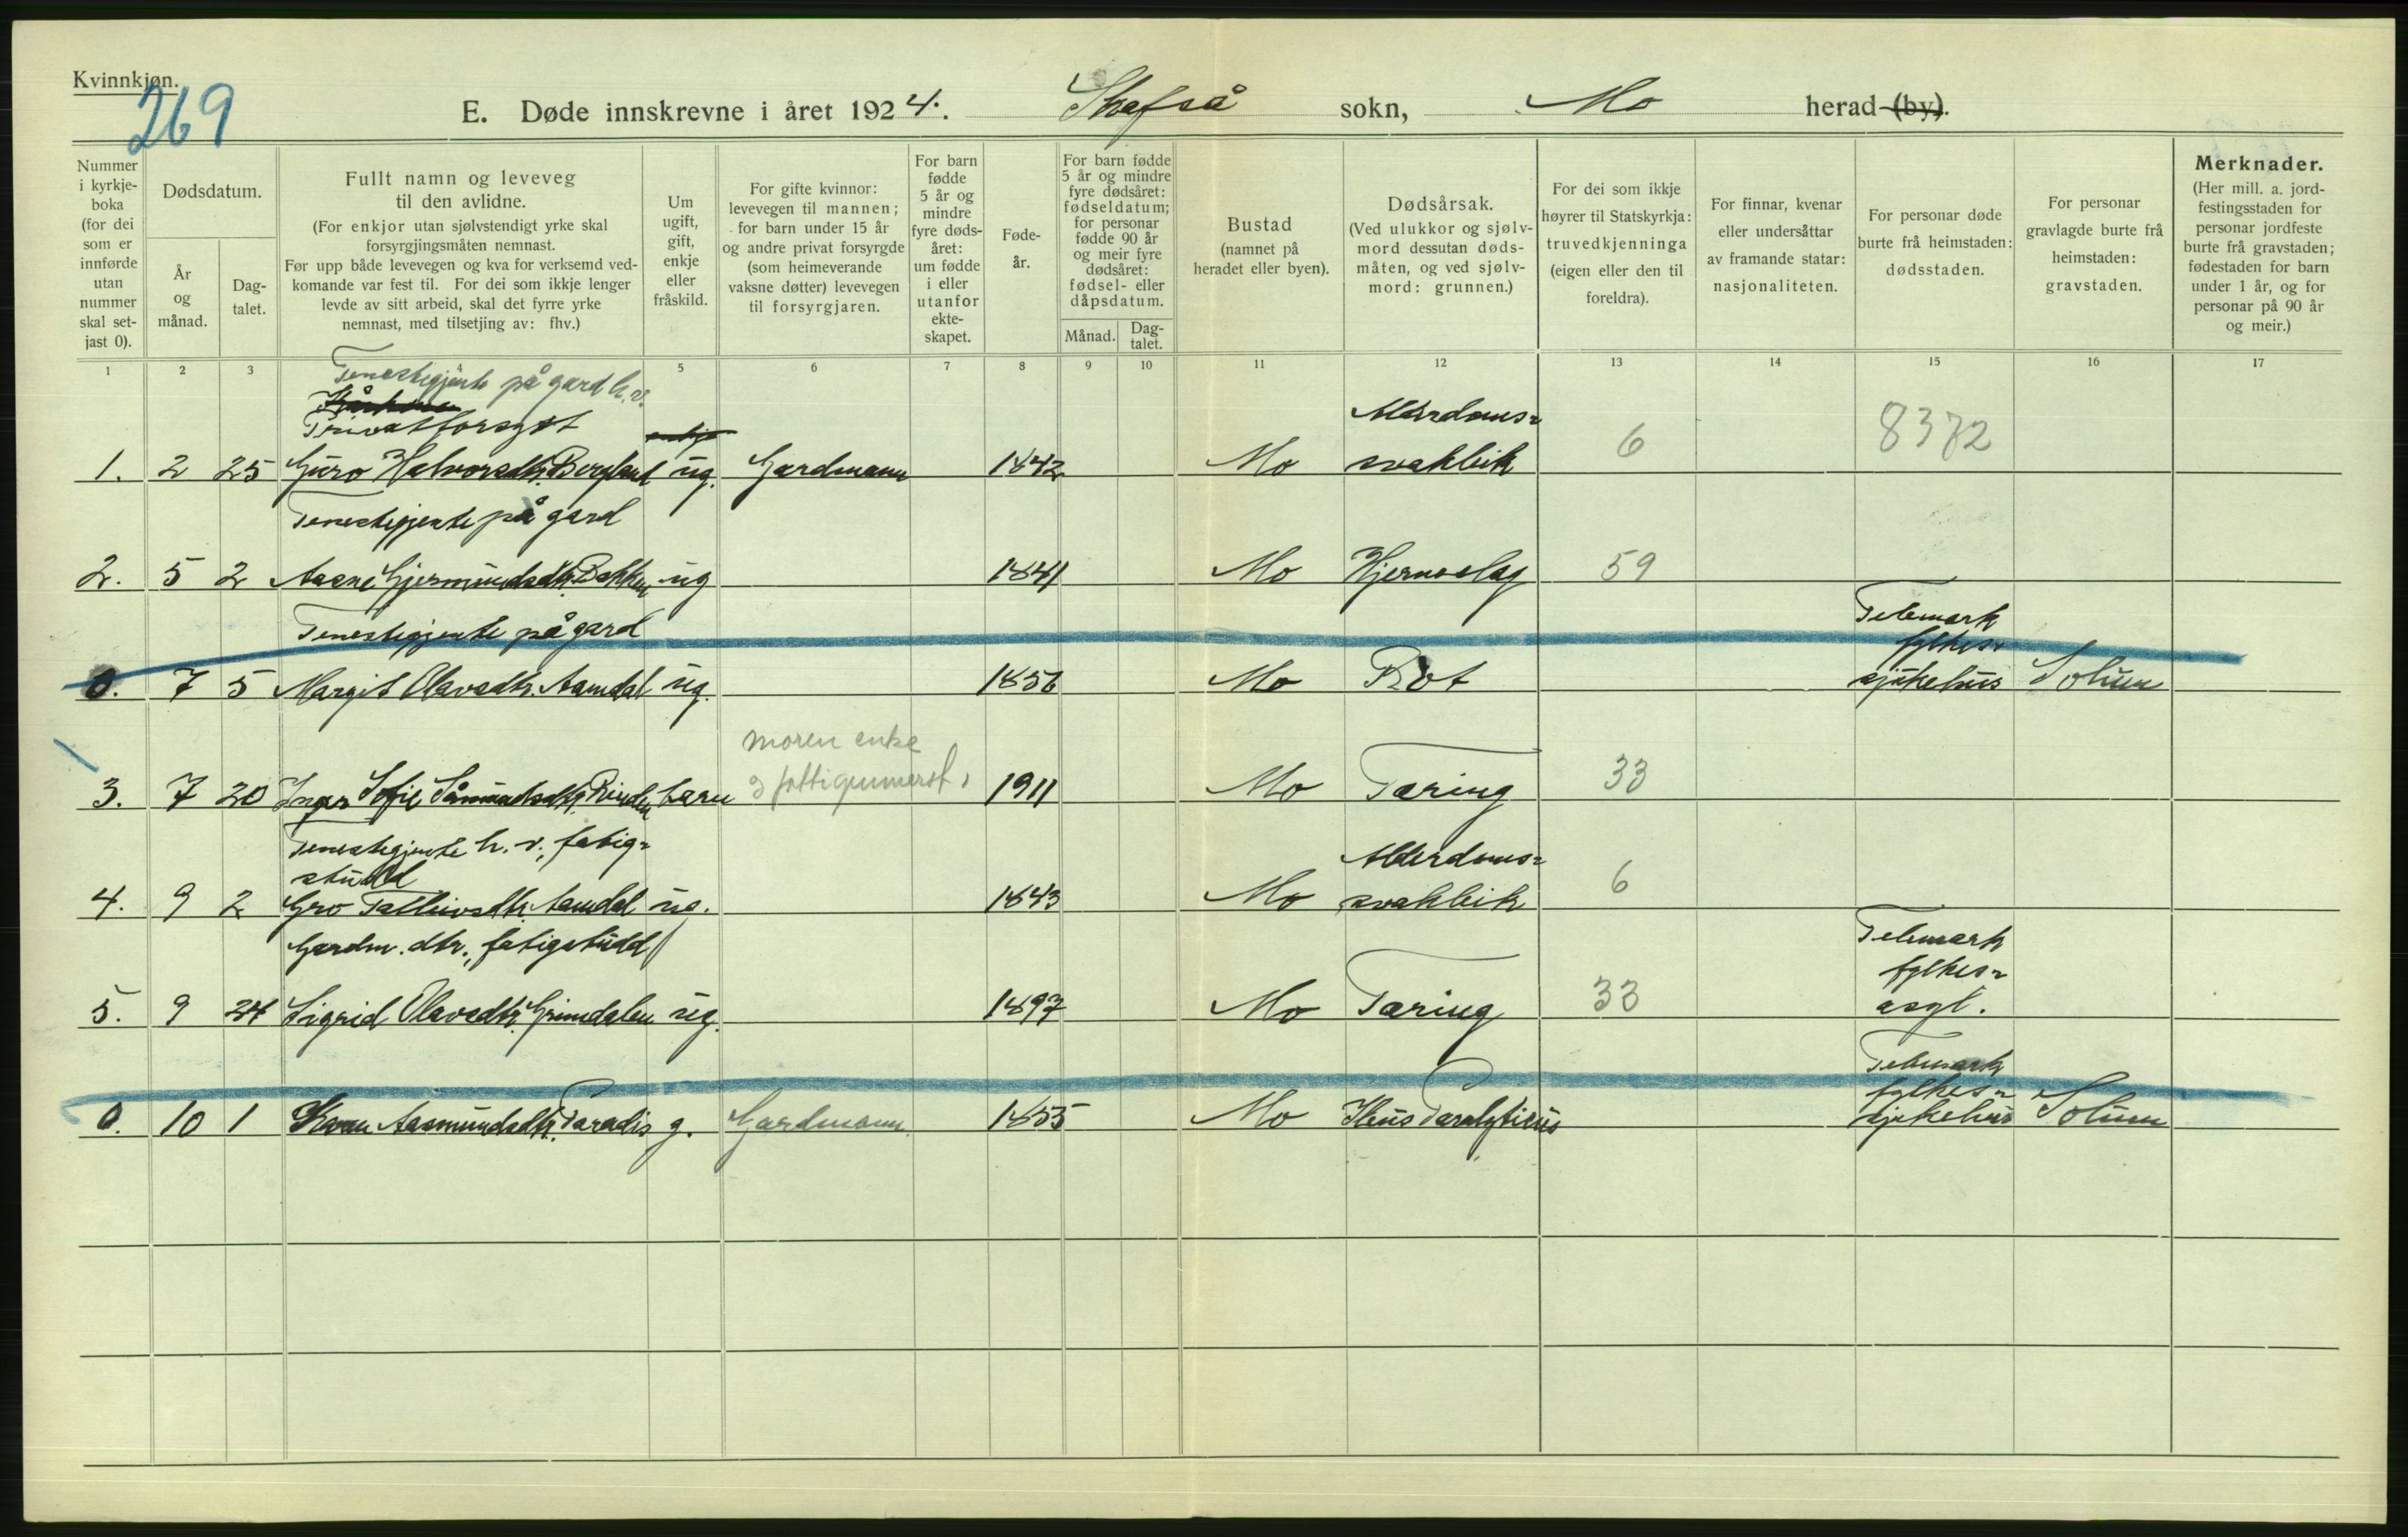 Kvinnkjøn.
269
E. Døde innskrevne i året 1924. Skafså sokn, Mo herad (by).
Nummer i kyrkje-boka (for dei som er innførde utan nummer skal set-jast 0).
Dødsdatum.
År og månad.
Dag-talet.
Fullt namn og leveveg til den avlidne.
(For enkjor utan sjølvstendigt yrke skal forsyrgjingsmåten nemnast.
Før upp både levevegen og kva for verksemd ved-komande var fest til. For dei som ikkje lenger levde av sitt arbeid, skal det fyrre yrke nemnast, med tilsetjing av: fhv.)
Um ugift, gift, enkje eller fråskild.
For gifte kvinnor: levevegen til mannen; for barn under 15 år og andre privat forsyrgde (som heimeverande vaksne døtter) levevegen til forsyrgjaren.
For barn fødde 5 år og mindre fyre døds-året: um fødde i eller utanfor ekte-skapet.
Føde-år.
For barn fødde 5 år og mindre fyre dødsåret: fødseldatum; for personar fødde 90 år og meir fyre dødsåret: fødsel- eller dåpsdatum.
Månad.
Dag-talet.
Bustad (namnet på heradet eller byen).
Dødsårsak.
(Ved ulukkor og sjølv-mord dessutan døds-måten, og ved sjølv-mord: grunnen.)
For dei som ikkje høyrer til Statskyrkja: truvedkjenninga (eigen eller den til foreldra).
For finnar, kvenar eller undersåttar av framande statar: nasjonaliteten.
For personar døde burte frå heimstaden: dødsstaden.
For personar gravlagde burte frå heimstaden: gravstaden.
Merknader.
(Her mill. a. jord-festingsstaden for personar jordfeste burte frå gravstaden; fødestaden for barn under 1 år, og for personar på 90 år og meir.)
1 2 3 5 6 7 8 9 10 11 12 13 14 15 16 17
Tenestegjente på gard h.v.
Privatforsyrt enkje Alderdoms=
1. 2 25 Guro Halvorsdtr. Bergland ug. Gardmann 1842 Mo svakleik 6 8372
Tenestegjente på gard
2. 5 2 Aasne Gjermundsdtr. Bakken ug 1841 Mo Hjerneslag 59
Tenestegjente på gard Telemark fylkes=
0. 7 5 Margit Olavsdtr. Aamdal ug. 1856 Mo Rot sjukehus Solum
moren enke
3. 7 20 Inger Sofie Såmundsdtr. Rinden barn 1911 Mo Tæring 33
Tenestegjente h. v., fatig=
studd Alderdoms=
4. 9 2 Gro Talleivsdtr. Aamdal ug. 1843 Mo svakleik 6
Gardm. dtr., fatigstudd Telemark fylkes=
5. 9 24 Sigrid Olavsdtr. Grimdalen ug. 1897 Mo Tæring 33 asyl.
Telemark fylkes=
0. 10 1 Aasmundsdtr. Paradis g. Gardmann 1855 Mo Ileus Paralyticus sjukehus Solum